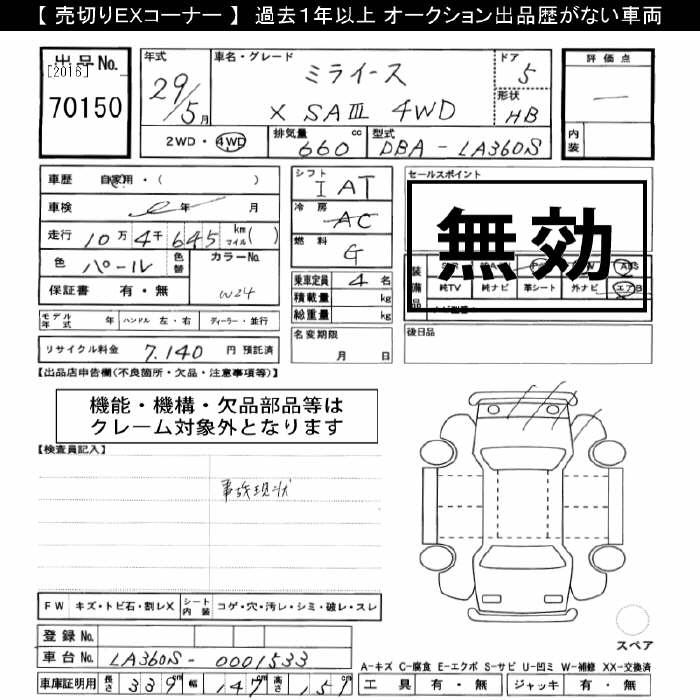 【 売切りEXコーナー 】 過去1年以上 オークション出品歴がない車両
出品No. [2016] 70150
年式 29/5月
車名・グレード ミライース X SAⅢ 4WD
ドア 5
形状 HB
評価点 —
内装
2WD・4WD
排気量 660 cc
型式 DBA-LA360S
車歴 自家用・( )
車検 年 月
走行 10万4千645 km マイル( )
色 パール
色替
カラーNo. W24
保証書 有・無
シフト I AT
冷房 AC
燃料 G
乗車定員 4 名
積載量 kg
総重量 kg
セールスポイント
無効
装備品
ABS
純TV 純ナビ 革シート 外ナビ エアB
モデル年式 年 ハンドル 左・右 ディーラー・並行
名変期限 月 日
後日品
リサイクル料金 7,140 円 預託済
【出品店申告欄(不良箇所・欠品・注意事項等)】
機能・機構・欠品部品等は
クレーム対象外となります
【検査員記入】
事故現状
FW キズ・トビ石・割レX シート内装 コゲ・穴・汚レ・シミ・破レ・スレ
登録No.
車台No. LA360S-0001533
スペア
A-キズ C-腐食 E-エクボ S-サビ U-凹ミ W-補修 XX-交換済
車庫証明用 長さ 339cm 幅 147cm 高さ 157cm
工具 有・無 ジャッキ 有・無